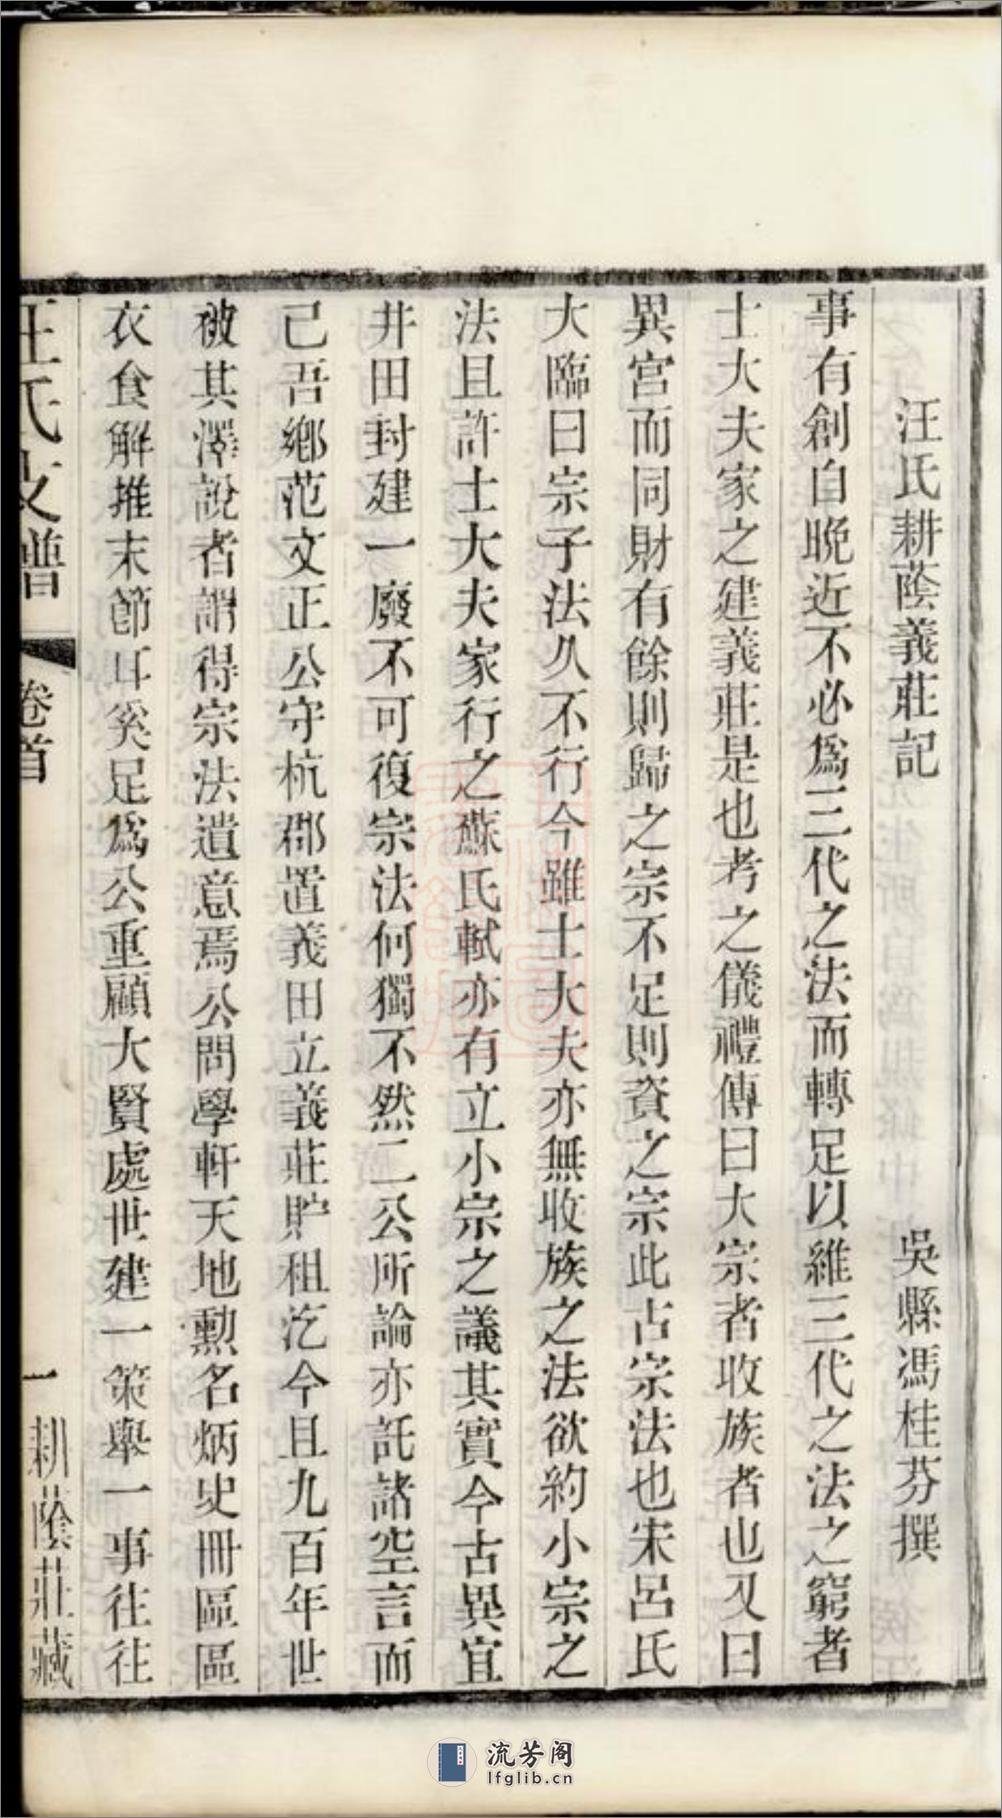 汪氏耕蔭義莊記
吳縣馮桂芬撰
事有創自晚近不必爲三代之法而轉足以維三代之法之窮者
士大夫家之建義莊是也考之儀禮傳曰大宗者收族者也又曰
異宮而同財有餘則歸之宗不足則資之宗此古宗法也宋呂氏
大臨曰宗子法久不行今雖士大夫亦無收族之法欲約小宗之
法且許士大夫家行之蘇氏軾亦有立小宗之議其實今古異宜
井田封建一廢不可復宗法何獨不然二公所論亦託諸空言而
己吾鄉范文正公守杭郡置義田立義莊貯租汔今且九百年世
被其澤說者謂得宗法遺意焉公問學軒天地勳名炳史冊區區
衣食解推末節耳奚足爲公重顧大賢處世建一策舉一事往往
汪氏支譜
卷首
一
耕蔭莊藏
流芳阁
lfglib.cn